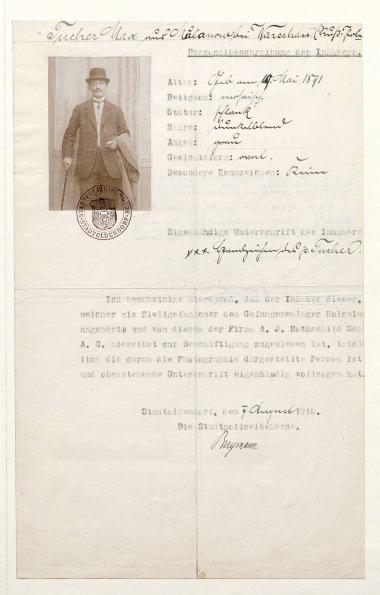 Tucher Max aus Kalanow bei Warschau (Russ. Polen
Personalbeschreibung des Inhabers.
Alter: Geb am 19. Mai 1871
Religion: mosaisch
Statur: schlank
Haare: dunkelblond
Augen: grau
Gesichtsform: oval.
Besondere Kennzeichen: Keine
STADTOLDENDORF
Eigenhändige Unterschrift des Inhabers
xxx Handzeichen des p. Tucher.
Ich bescheinige hierdurch, das der Inhaber dieses,
welcher als Zivilgefangener dem Gefangenenlager Holzminden
angehörte und von diesem der Firma A. J. Rothschild Söhne
A. G. hieselbst zur Beschäftigung zugewiesen ist, tatsäch-
lich die durch die Photographie dargestellte Person ist
und obenstehende Unterschrift eigenhändig vollzogen hat.
Stadtoldendorf, den 7. August 191
Die Stadtpolizeibehörde.